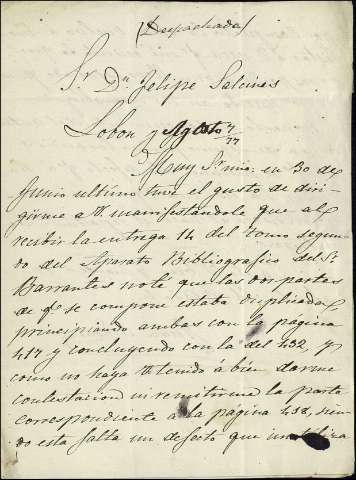 (Despachada)
Sr. Dn. Felipe Salcines
Lobon y Agosto 7/77
Muy Sr. mio: en 30 de
Junio ultimo tuve el gusto de diri-
girme a V. manifestandole que al
recibir la entrega 14 del tomo segun-
do del Aparato Bibliografico del Sr.
Barrantes noté que las dos partes
de qe. se compone estaba duplicada,
principiando ambas con la página
417 y concluyendo con la del 432, y
como no haya V. tenido á bien darme
contestacion ni remitirme la parte
correspondiente á la página 433, sien-
do esta falta un defecto que inutiliza